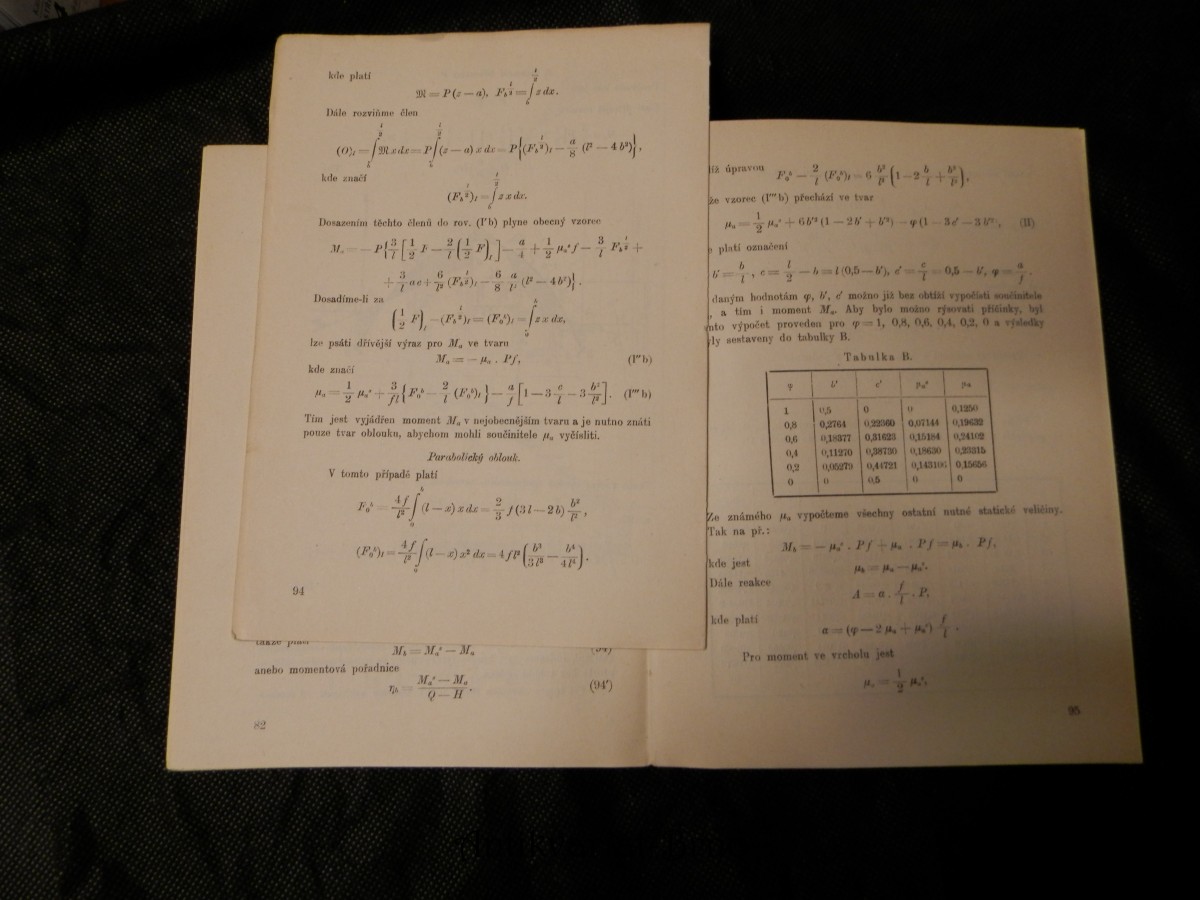 kde platí
𝔐 = P (z — a), F_b^{l/2} = ∫_b^{l/2} z dx.
Dále rozviňme člen
= ∫_b^{l/2} 𝔐 x dx = P ∫_b^{l/2} (z — a) x dx = P {(F_b^{l/2})_l — a/8 (l² — 4 b²)},
kde značí
(F_b^{l/2})_l = ∫_b^{l/2} z x dx.
Dosazením těchto členů do rov. (I'b) plyne obecný vzorec
M_a = — P {3/l [1/2 F — 2/l (1/2 F)_l] — a/4 + 1/2 μ_a^s f — 3/l F_b^{l/2} +
+ 3/l ac + 6/l² (F_b^{l/2})_l — 6/8 a/l² (l² — 4 b²)}.
Dosadíme-li za
(1/2 F)_l — (F_b^{l/2})_l = (F_0^b)_l = ∫_0^b z x dx,
lze psáti dřívější výraz pro M_a ve tvaru
M_a = — μ_a . Pf, (I''b)
kde značí
μ_a = 1/2 μ_a^s + 3/fl {F_0^b — 2/l (F_0^b)_l} — a/f [1 — 3 c/l — 3 b²/l²]. (I'''b)
Tím jest vyjádřen moment M_a v nejobecnějším tvaru a je nutno znáti
pouze tvar oblouku, abychom mohli součinitele μ_a vyčísliti.
Parabolický oblouk.
V tomto případě platí
F_0^b = 4f/l² ∫_0^b (l — x) x dx = 2/3 f (3 l — 2 b) b²/l²,
(F_0^b)_l = 4f/l² ∫_0 (l — x) x² dx = 4 f l² (b³/3 l³ — b⁴/4 l⁴).
94
takže platí
M_b = M_a^s — M_a (94)
anebo momentová pořadnice
η_b = M_a^s — M_a / Q — H. (94')
82
íž úpravou
F_0^b — 2/l (F_0^b)_l = 6 b²/l² (1 — 2 b/l + b²/l²),
že vzorec (I'''b) přechází ve tvar
μ_a = 1/2 μ_a^s + 6 b'² (1 — 2 b' + b'²) — φ (1 — 3 c' — 3 b'²), (II)
platí označení
b' = b/l, c = l/2 — b = l (0,5 — b'), c' = c/l = 0,5 — b', φ = a/f.
daným hodnotám φ, b', c' možno již bez obtíží vypočísti součinitele
, a tím i moment M_a. Aby bylo možno rýsovati příčinky, byl
nto výpočet proveden pro φ = 1, 0,8, 0,6, 0,4, 0,2, 0 a výsledky
ly sestaveny do tabulky B.
Tabulka B.
φ b' c' μ_a^s μ_a
1 0,5 0 0 0,1250
0,8 0,2764 0,22360 0,07144 0,19632
0,6 0,18377 0,31623 0,15184 0,24102
0,4 0,11270 0,38730 0,18630 0,23315
0,2 0,05279 0,44721 0,143106 0,15656
0 0 0,5 0 0
Ze známého μ_a vypočteme všechny ostatní nutné statické veličiny.
Tak na př.:
M_b = — μ_a^s . Pf + μ_a . Pf = μ_b . Pf,
kde jest
μ_b = μ_a — μ_a^s.
Dále reakce
A = α . f/l . P,
kde platí
α = (φ — 2 μ_a + μ_a^s) f/l .
Pro moment ve vrcholu jest
μ_c = 1/2 μ_a^s.
95